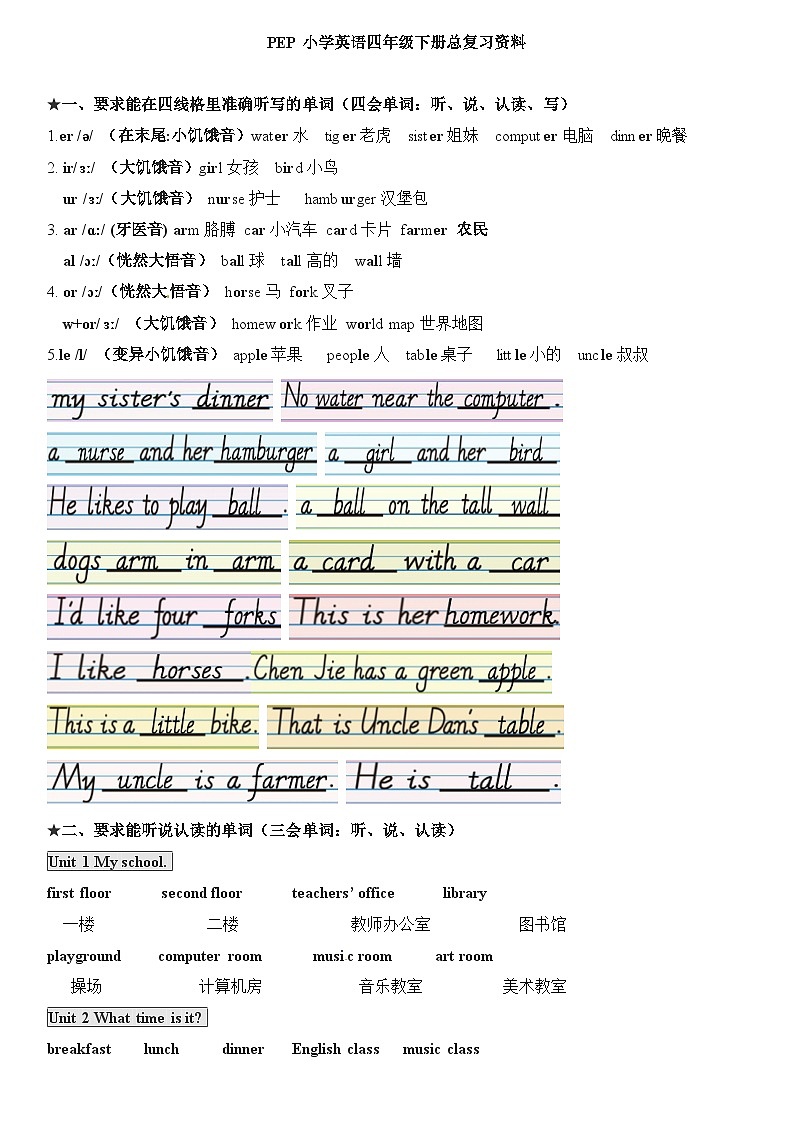 PEP 小学英语四年级下册总复习资料
★一、要求能在四线格里准确听写的单词（四会单词：听、说、认读、写）
1.er /ə/ （在末尾:小饥饿音）water 水 tiger 老虎 sister 姐妹 computer 电脑 dinner 晚餐
2. ir/ɜː/ （大饥饿音）girl 女孩 bird 小鸟
ur /ɜː/（大饥饿音） nurse 护士 hamburger 汉堡包
3. ar /ɑː/ (牙医音) arm 胳膊 car 小汽车 card 卡片 farmer 农民
al /ɔː/（恍然大悟音） ball 球 tall 高的 wall 墙
4. or /ɔː/（恍然大悟音） horse 马 fork 叉子
w+or/ɜː/ （大饥饿音） homework 作业 world map 世界地图
5.le /l/ （变异小饥饿音） apple 苹果 people 人 table 桌子 little 小的 uncle 叔叔
my sister's dinner No water near the computer .
a nurse and her hamburger a girl and her bird
He likes to play ball . a ball on the tall wall
dogs arm in arm a card with a car
I'd like four forks This is her homework.
I like horses . Chen Jie has a green apple .
This is a little bike. That is Uncle Dan's table .
My uncle is a farmer. He is tall .
★二、要求能听说认读的单词（三会单词：听、说、认读）
Unit 1 My school.
first floor second floor teachers’ office library
一楼 二楼 教师办公室 图书馆
playground computer room music room art room
操场 计算机房 音乐教室 美术教室
Unit 2 What time is it?
breakfast lunch dinner English class music class